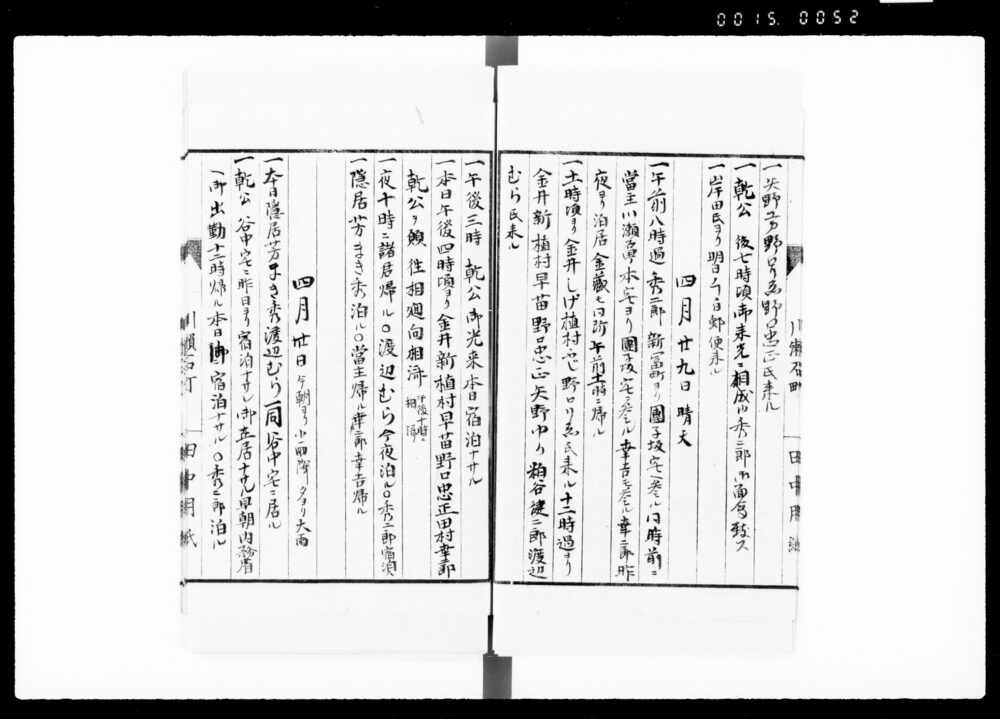 0015. 0052
一矢野 野口 野口忠正氏来ル
一乾公 後七時頃御来光ニ相成ル秀二郎御面会致ス
一岸田氏ヨリ明日 郵便来ル
四月廿九日 晴天
一午前八時過秀二郎新富町ヨリ團子坂宅ヘ参ル同時前ニ
當主川瀬 本宅ヨリ團子坂宅ニ参ル幸吉モ参ル幸二郎昨
夜ヨリ泊居金蔵モ同断午前十一時ニ帰ル
一十一時頃ヨリ金井しげ植村 野口りゑ氏来ル十二時過ヨリ
金井新植村早苗野口忠正矢野ゆり粕谷健二郎渡辺
むら氏来ル
一午後三時 乾公御光来本日宿泊ナサル
一本日午後四時頃ヨリ金井新植村早苗野口忠正田村幸二郎
乾公ヲ願 相廻向相済 午後十時ニ相済
一夜十時ニ諸君帰ル〇渡辺むら今夜泊ル〇秀二郎宿
一隠居芳まき秀泊ル〇當主帰ル幸二郎幸吉帰ル
四月卅日 今朝ヨリ小雨降夕方ヨリ大雨
一本日隠居芳まき秀渡辺むら一同谷中宅ニ居ル
一乾公谷中宅ニ昨日ヨリ宿泊ナサレ御在居 早朝内務省
御出勤十二時帰ル本日 宿泊ナサル〇秀二郎泊ル
川瀬石町
田中用紙